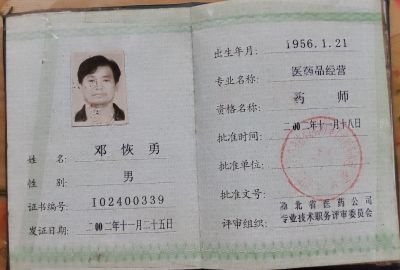 姓 名： 邓恢勇
性 别： 男
证书编号： I02400339
发证日期： 二〇〇二年十一月二十五日
出生年月： 1956.1.21
专业名称： 医药品经营
资格名称： 药 师
批准时间： 二〇〇二年十一月十八日
批准单位：
批准文号：
评审组织： 湖北省医药公司
专业技术职务评审委员会